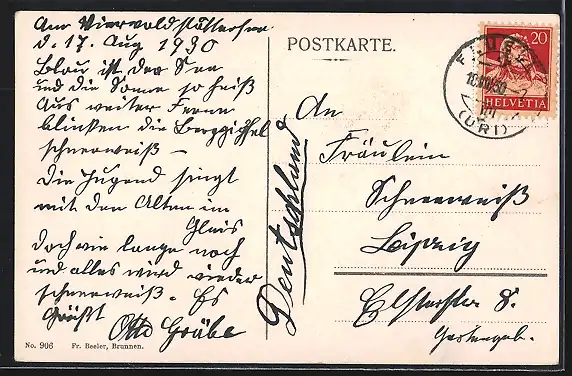 Am Vierwaldstättersee
d. 17. Aug 1930
Blau ist der See
und die Sonne so heiß
Aus weiter Ferne
blinken die Berggipfel
schneeweiß –
Die Jugend singt
mit den Alten im
Gleis
Doch wie lange noch
und alles wird wieder
schneeweiß. Es
Grüßt
Otto Gräbe
No. 906 Fr. Beeler, Brunnen.
POSTKARTE.
An
Fräulein
Schneeweiß
Leipzig
Elsterstr 8.
Deutschland
20
HELVETIA
(URI)